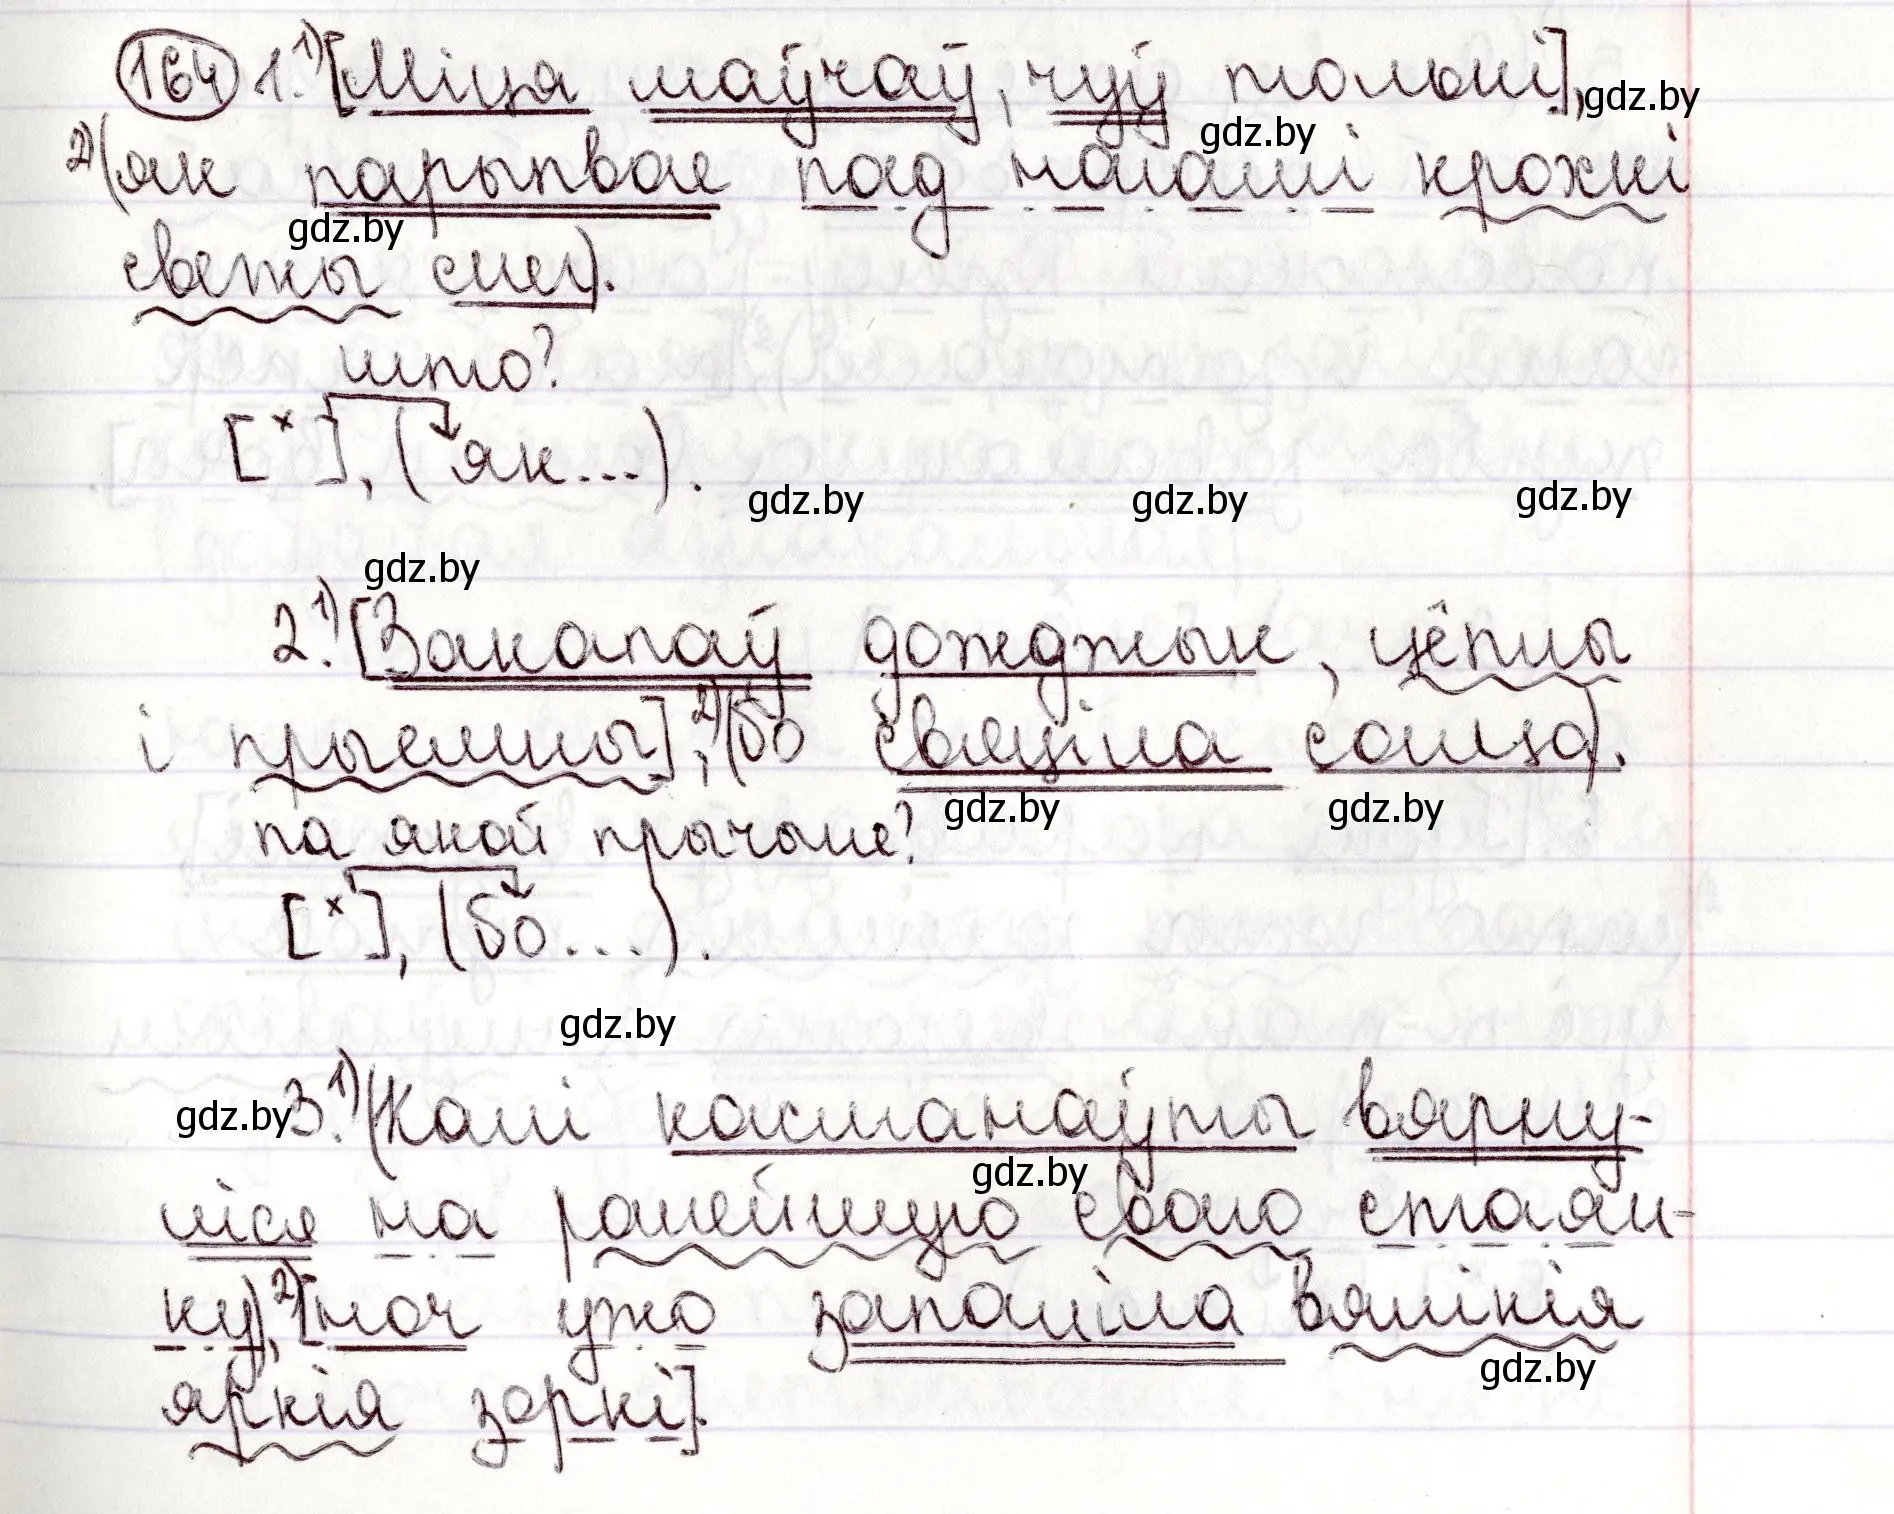 164 1. 1)[Міця маўчаў, чуў толькі], gdz.by
gdz.by
2)(як парыпвае пад нагамі крохкі
gdz.by
светы снег).
што?
[ˣ], (як...).
gdz.by gdz.by gdz.by
gdz.by
2. 1)[Закапаў дожджык, цёплы
і прыемны], 2)(бо свяціла сонца).
gdz.by gdz.by
па якой прычыне?
[ˣ], (бо...).
gdz.by
gdz.by 3. 1)(Калі касманаўты вярну-
gdz.by
ліся на ранейшую сваю стаян-
ку), 2)[ноч ужо запаліла вялікія
gdz.by
яркія зоркі].